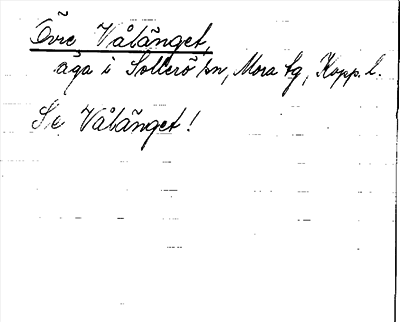 Övre Vålänget,
äga i Sollerö sn, Mora tg, Kopp. l.
Se Vålänget!